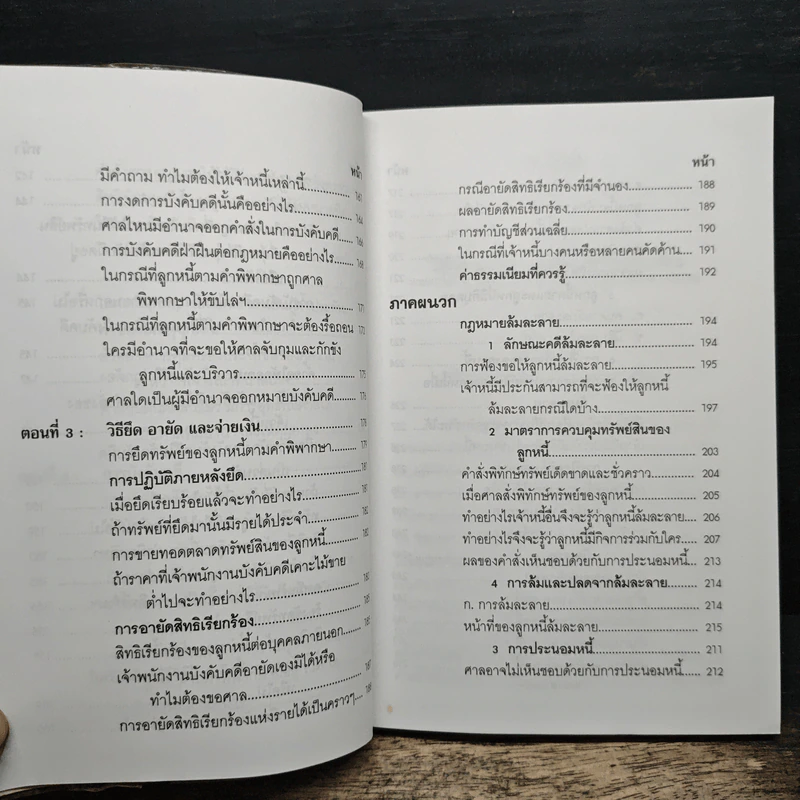 หน้า
มีคำถาม ทำไมต้องให้เจ้าหนี้เหล่านี้.............. 161
การงดการบังคับคดีนั้นคืออย่างไร..................
ศาลไหนมีอำนาจออกคำสั่งในการบังคับคดี......
การบังคับคดีฝ่าฝืนต่อกฎหมายคืออย่างไร........
ในกรณีที่ลูกหนี้ตามคำพิพากษาถูกศาล
พิพากษาให้ขับไล่ฯ......................... 171
ในกรณีที่ลูกหนี้ตามคำพิพากษาจะต้องรื้อถอน
ใครมีอำนาจที่จะขอให้ศาลจับกุมและกักขัง
ลูกหนี้และบริวาร........................... 175
ศาลใดเป็นผู้มีอำนาจออกหมายบังคับคดี......... 176
ตอนที่ 3 : วิธียึด อายัด และจ่ายเงิน.................... 178
การยึดทรัพย์ของลูกหนี้ตามคำพิพากษา........ 179
การปฏิบัติภายหลังยึด............................ 181
เมื่อยึดเรียบร้อยแล้วจะทำอย่างไร............... 181
ถ้าทรัพย์ที่ยึดมานั้นมีรายได้ประจำ.............. 182
การขายทอดตลาดทรัพย์สินของลูกหนี้.........
ถ้าราคาที่เจ้าพนักงานบังคับคดีเคาะไม้ขาย
ต่ำไปจะทำอย่างไร......................
การอายัดสิทธิเรียกร้อง.......................... 185
สิทธิเรียกร้องของลูกหนี้ต่อบุคคลภายนอก......
เจ้าพนักงานบังคับคดีอายัดเองมิได้หรือ
ทำไมต้องขอศาล......................... 187
การอายัดสิทธิเรียกร้องแห่งรายได้เป็นคราวๆ....
หน้า
กรณีอายัดสิทธิเรียกร้องที่มีจำนอง................ 188
ผลอายัดสิทธิเรียกร้อง............................ 189
การทำบัญชีส่วนเฉลี่ย............................ 190
ในกรณีที่เจ้าหนี้บางคนหรือหลายคนคัดค้าน..... 191
ค่าธรรมเนียมที่ควรรู้.............................. 192
ภาคผนวก
กฎหมายล้มละลาย................................ 194
1 ลักษณะคดีล้มละลาย.................... 194
การฟ้องขอให้ลูกหนี้ล้มละลาย.................. 195
เจ้าหนี้มีประกันสามารถที่จะฟ้องให้ลูกหนี้
ล้มละลายกรณีใดบ้าง.................... 197
2 มาตราการควบคุมทรัพย์สินของ
ลูกหนี้.................................... 203
คำสั่งพิทักษ์ทรัพย์เด็ดขาดและชั่วคราว.......... 204
เมื่อศาลสั่งพิทักษ์ทรัพย์ของลูกหนี้............... 205
ทำอย่างไรเจ้าหนี้อื่นจึงจะรู้ว่าลูกหนี้ล้มละลาย.... 206
ทำอย่างไรจึงจะรู้ว่าลูกหนี้มีกิจการร่วมกับใคร.... 207
ผลของคำสั่งเห็นชอบด้วยกับการประนอมหนี้.... 213
4 การล้มและปลดจากล้มละลาย........ 214
ก. การล้มละลาย................................. 214
หน้าที่ของลูกหนี้ล้มละลาย....................... 215
3 การประนอมหนี้......................... 211
ศาลอาจไม่เห็นชอบด้วยกับการประนอมหนี้...... 212